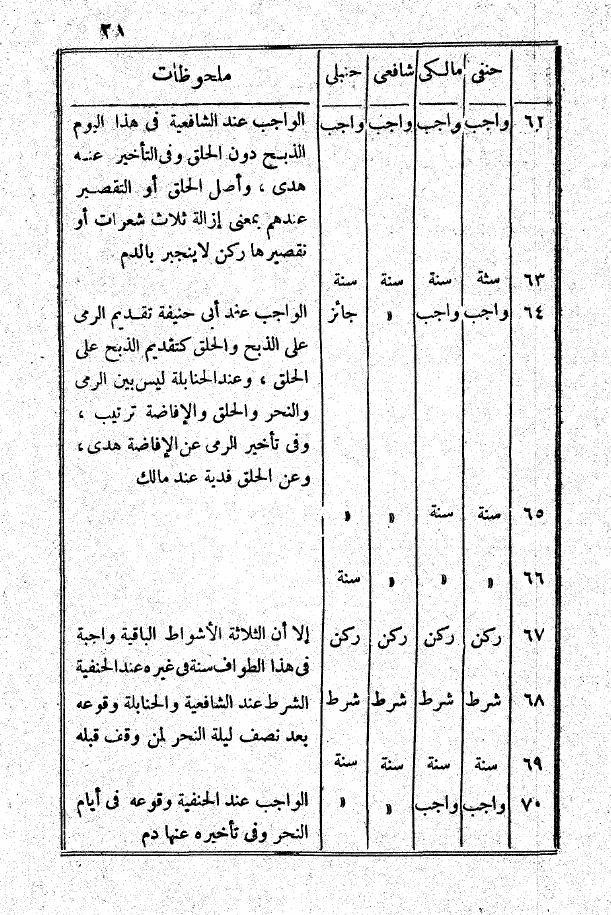 ٢٨
حنفى مالكى شافعى حنبلى ملحوظات
٦٢ واجب واجب واجب واجب الواجب عند الشافعية فى هذا اليوم
الذبح دون الحلق وفى التأخير عنه
هدى ، وأصل الحلق أو التقصير
عندهم بمعنى إزالة ثلاث شعرات أو
تقصيرها ركن لا ينجبر بالدم
٦٣ سنة سنة سنة سنة
٦٤ واجب واجب » جائز الواجب عند أبى حنيفة تقديم الرمى
على الذبح والحلق كتقديم الذبح على
الحلق ، وعند الحنابلة ليس بين الرمى
والنحر والحلق والإفاضة ترتيب ،
وفى تأخير الرمى عن الإفاضة هدى ،
وعن الحلق فدية عند مالك
٦٥ سنة سنة » »
٦٦ » » » سنة
٦٧ ركن ركن ركن ركن إلا أن الثلاثة الأشواط الباقية واجبة
فى هذا الطواف سنة فى غيره عند الحنفية
٦٨ شرط شرط شرط شرط الشرط عند الشافعية والحنابلة وقوعه
بعد نصف ليلة النحر لمن وقف قبله
٦٩ سنة سنة سنة سنة
٧٠ واجب واجب » » الواجب عند الحنفية وقوعه فى أيام
النحر وفى تأخيره عنها دم